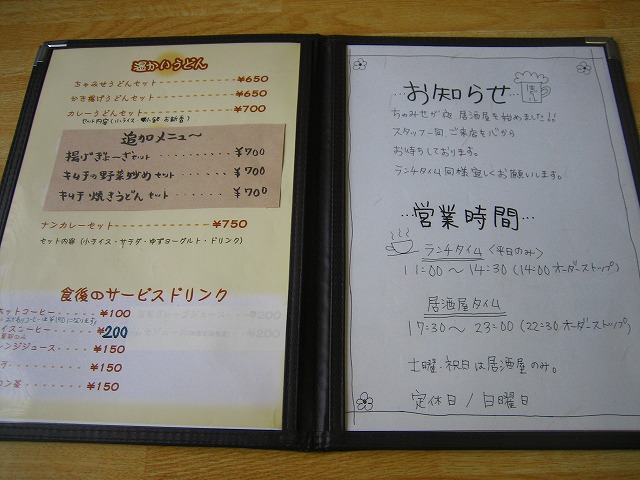 温かいうどん
ちゃみせうどんセット ¥650
かき揚げうどんセット ¥650
カレーうどんセット ¥700
追加メニュ〜
揚げぎょーざセット ¥700
キムチの野菜炒めセット ¥700
キムチ焼きうどんセット ¥700
ナンカレーセット ¥750
セット内容(小ライス・サラダ・ゆずヨーグルト・ドリンク)
食後のサービスドリンク
ホットコーヒー ¥100
イスコーヒー ¥200
ンジジュース ¥150
ラ ¥150
ロン茶 ¥150
…お知らせ…
ちゃみせが夜 居酒屋を始めました!!
スタッフ一同 ご来店を心から
お待ちしております。
ランチタイム同様宜しくお願いします。
…営業時間…
ランチタイム〈平日のみ〉
11:00〜14:30(14:00 オーダーストップ)
居酒屋タイム
17:30〜23:00(22:30 オーダーストップ)
土曜・祝日は居酒屋のみ。
定休日/日曜日